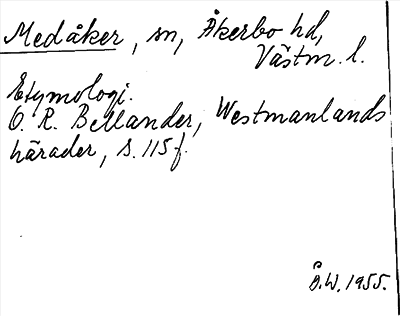 Medåker, sn, Åkerbo hd,
Västm. l.
Etymologi.
O. R. Bellander, Westmanlands
härader, s. 115 f.
Å.W. 1955.